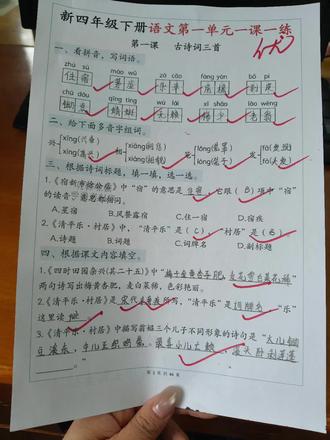 新四年级下册语文第一单元一课一练
第一课 古诗词三首
一、看拼音,写词语。
zhù sù máo wū zá cǎo fáng yán bō pí
住宿 茅屋 杂草 房檐 剥皮
chú dāo qīng tíng wú lài xī shǎo lǎo wēng
锄 蜻蜓 无赖 稀少 老翁
二、给下面多音字组词。
兴 xīng(兴奋) xìng(高兴) 相 xiāng xiàng 笼 lóng lǒng 发 fā fà(头发)
三、根据诗词标题,填一填,选一选。
1.《宿新市徐公店》中“宿”的意思是住宿,它跟(B)项中“宿”
的读音、意思都相同。
A.星宿 B.风餐露宿 C.住一宿 D.宿疾
2.《清平乐·村居》中,“清平乐”是(C),“村居”是(B)。
A.诗题 B.词题 C.词牌名 D.副标题
四、根据课文内容填空。
1.《四时田园杂兴(其二十五)》中“梅子金黄杏子肥,麦花雪白菜花稀”
两句诗写出梅黄杏肥,麦白菜稀,色彩艳丽。
2.《清平乐·村居》是宋代辛弃疾所写,“清平乐”是词牌名,“乐”
这里读yuè。
3.《清平乐·村居》中描写翁媪三个儿子不同形象的诗句是“大儿锄
豆溪东,中儿正织鸡笼。最喜小儿亡赖,溪头卧剥莲蓬